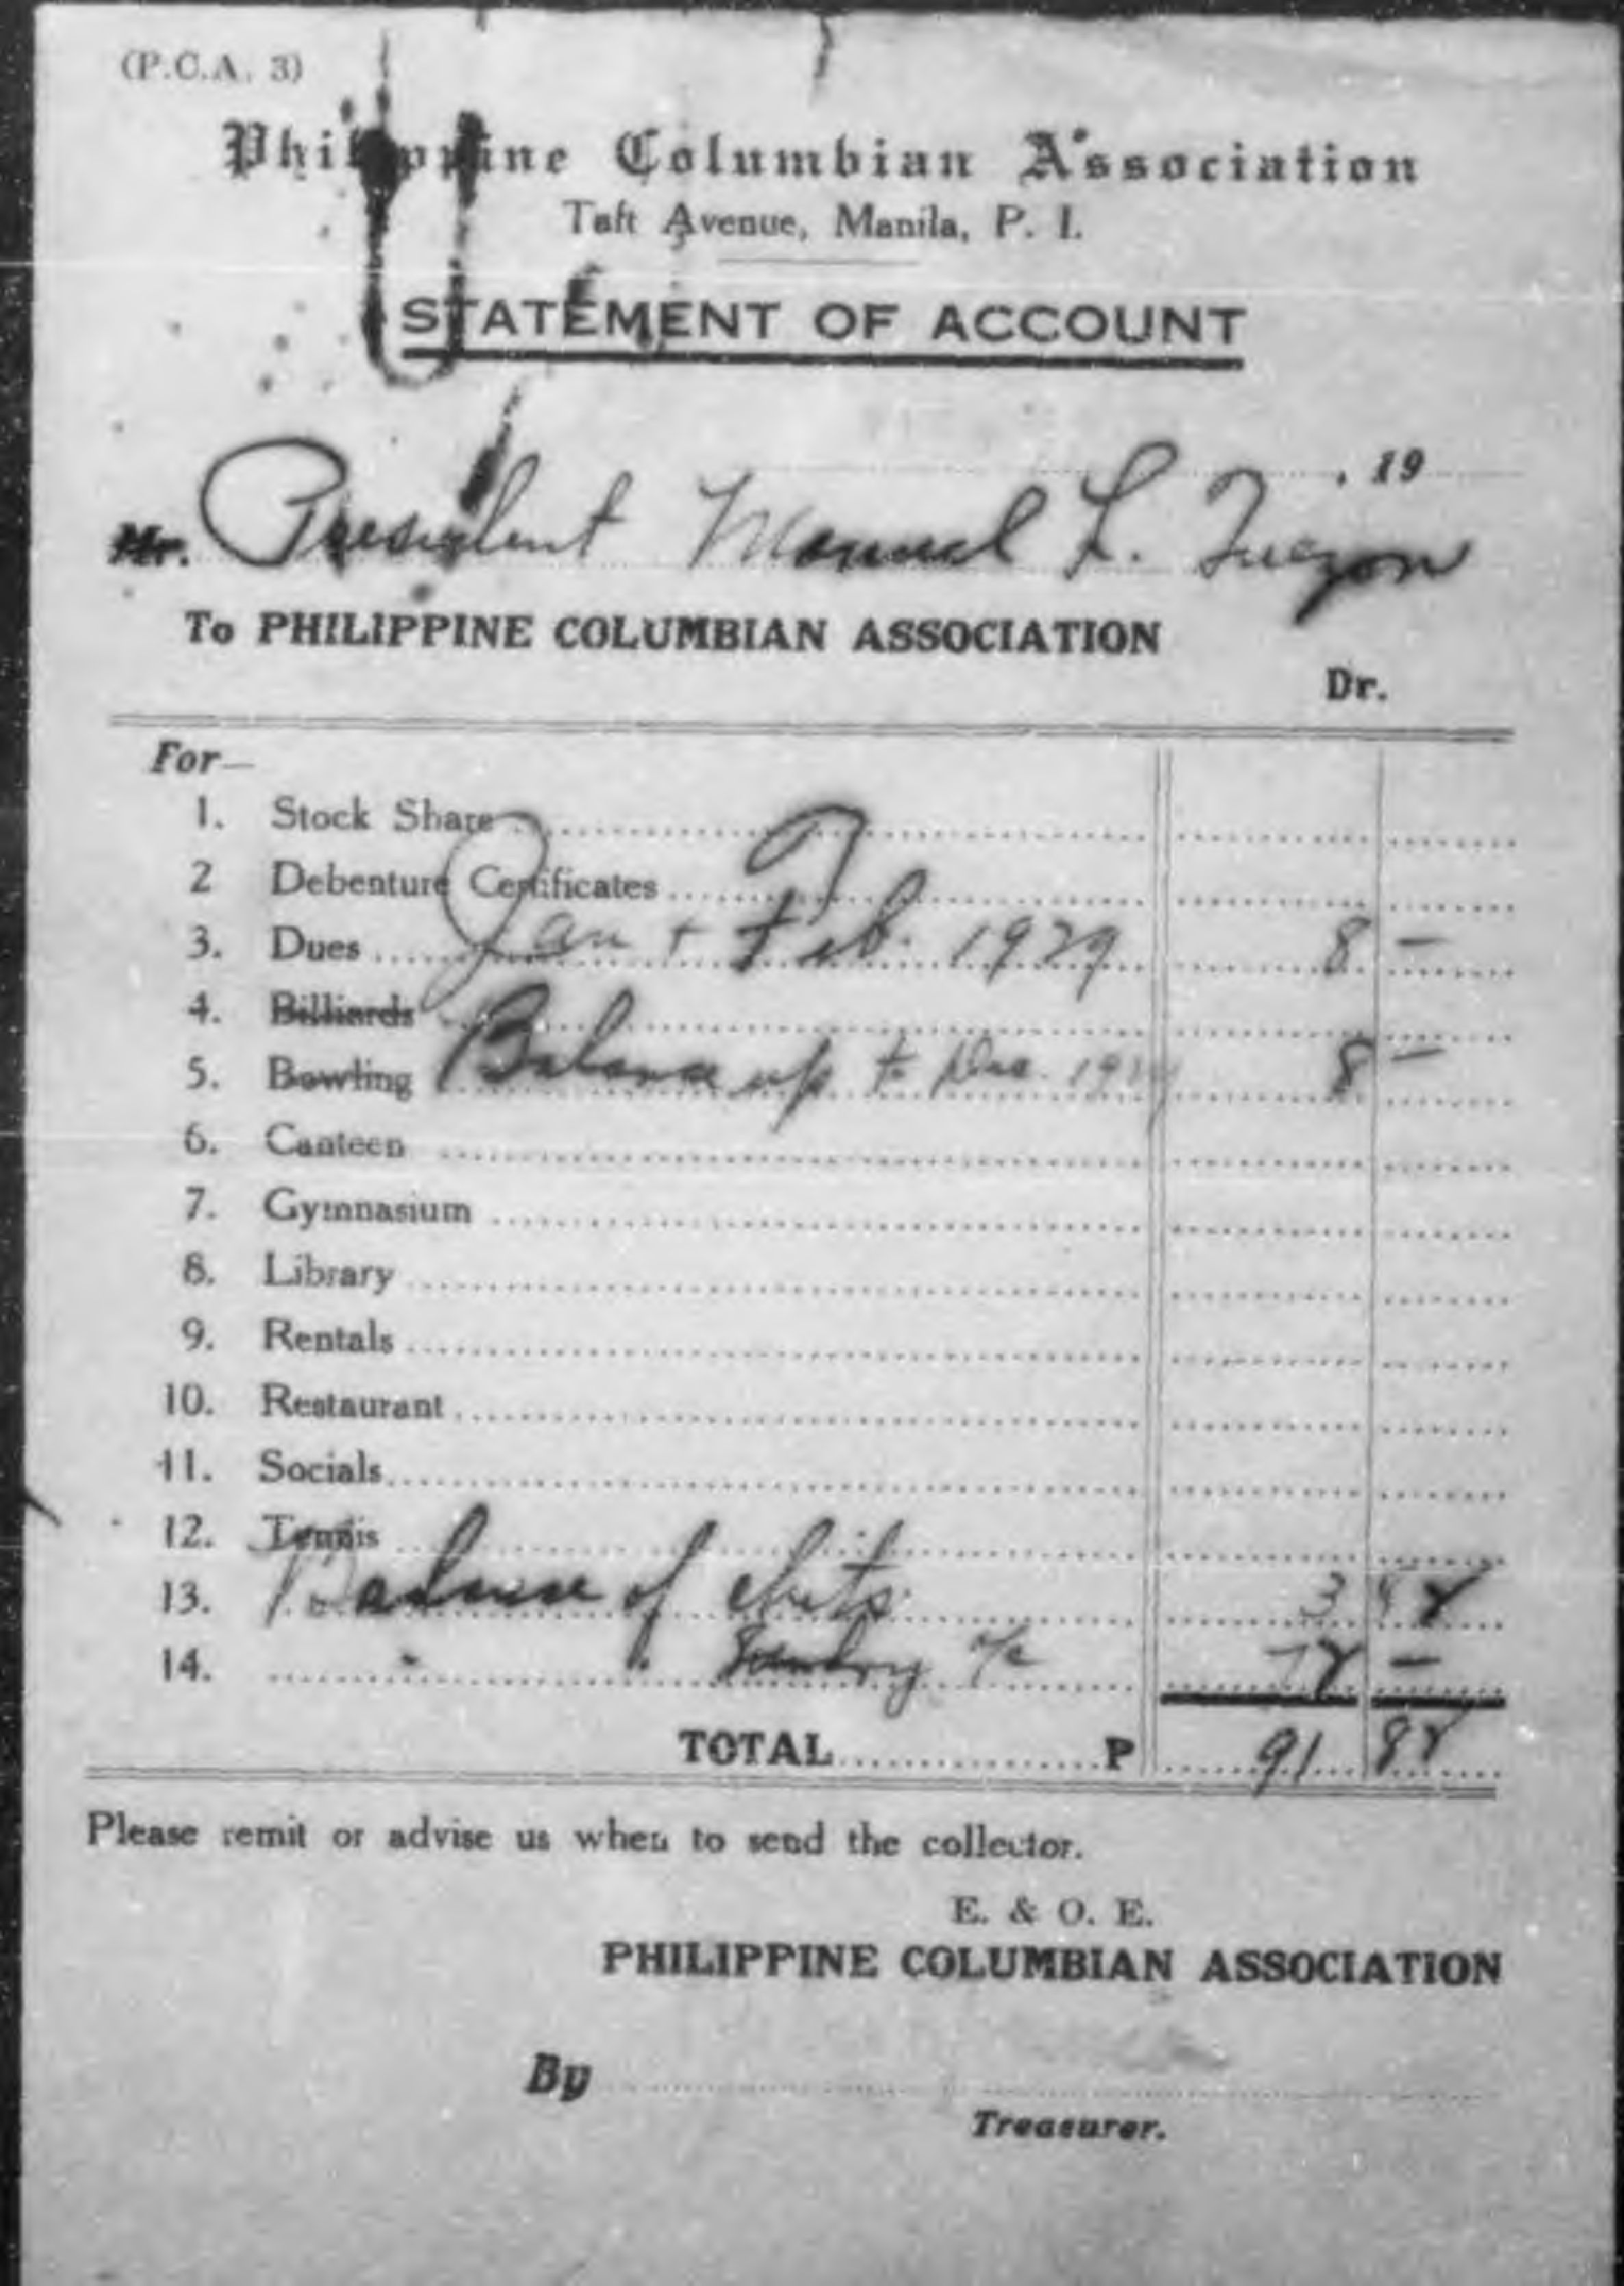 (P.C.A. 3)
Philippine Columbian Association
Taft Avenue, Manila, P. I.
STATEMENT OF ACCOUNT
, 19
Mr. President Manuel L. Quezon
To PHILIPPINE COLUMBIAN ASSOCIATION
Dr.
For—
1. Stock Share
2 Debenture Certificates
3. Dues Jan + Feb. 1929 8 —
4. Billiards
5. Bowling Balance up to Dec. 8 —
6. Canteen
7. Gymnasium
8. Library
9. Rentals
10. Restaurant
11. Socials
12. Tennis
13. Balance of chits
14. " " Sundry a/c —
TOTAL P 91
Please remit or advise us when to send the collector.
E. & O. E.
PHILIPPINE COLUMBIAN ASSOCIATION
By
Treasurer.